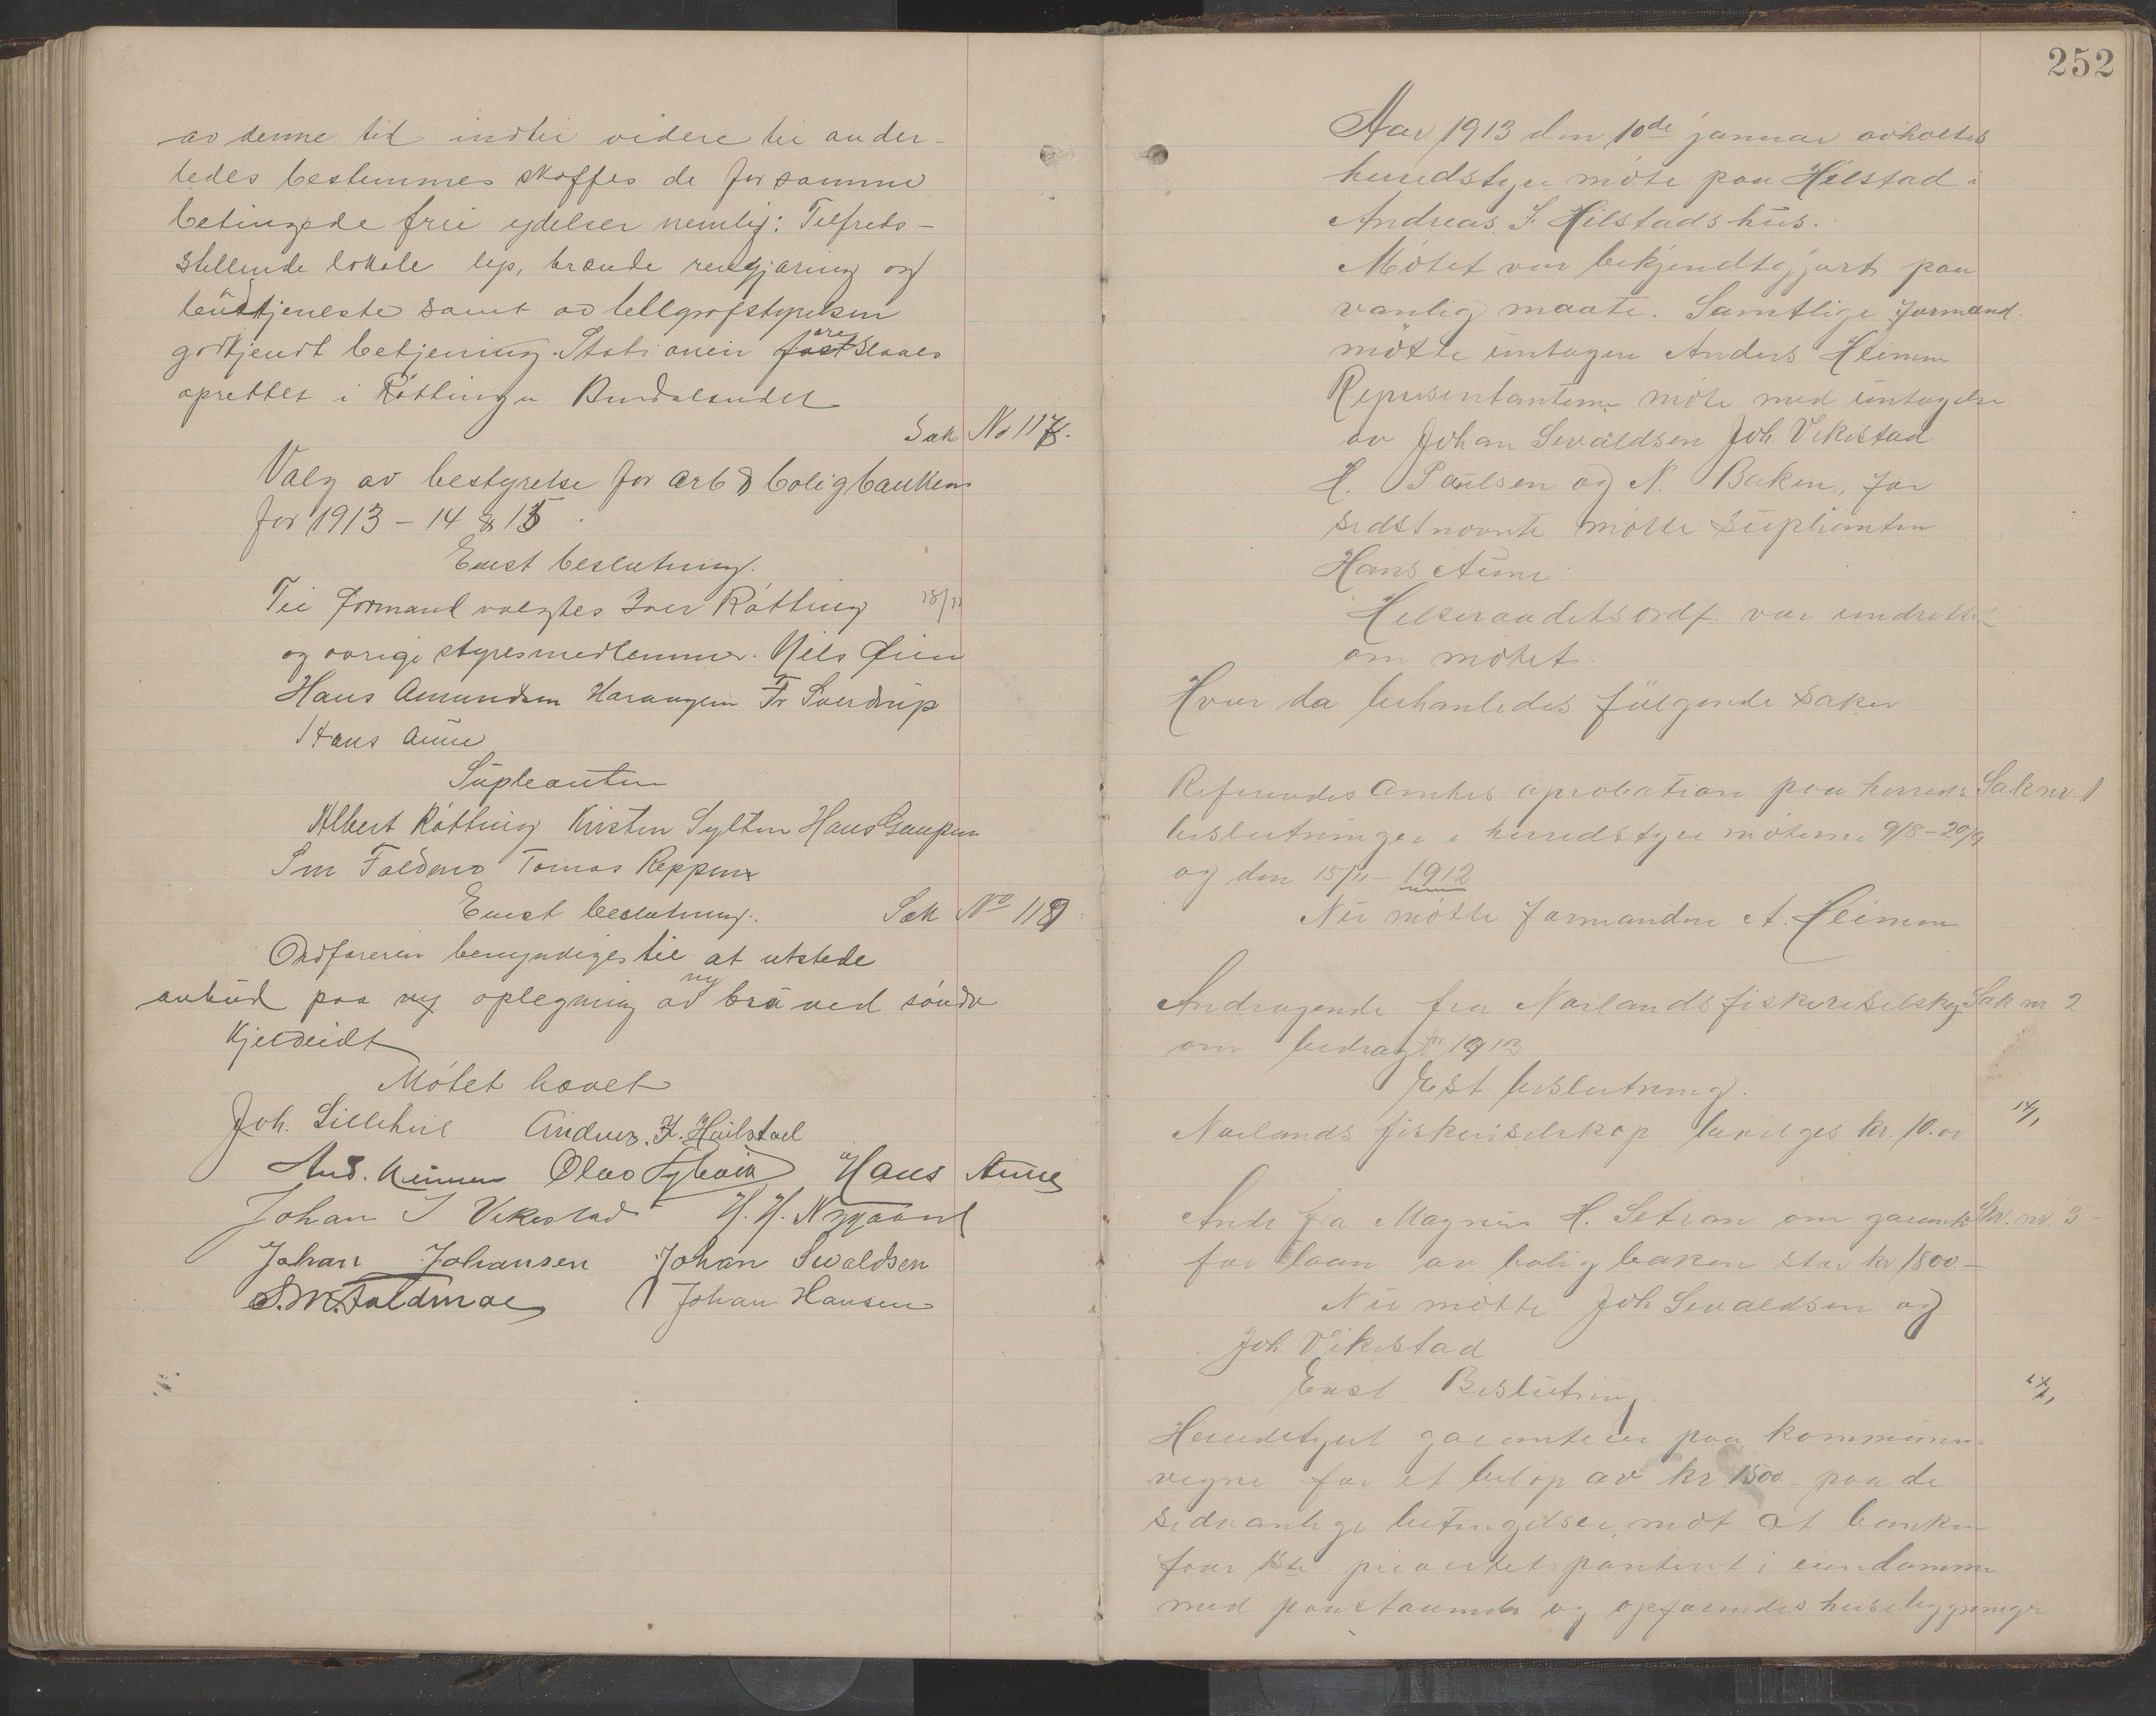 av denne tid indtil videre til ander-
ledes bestemmes skaffes de for samme
betingede frie ydelser nemlig: Tilfreds-
stillende lokale lys, brænde rengjøring og
budtjeneste samt av tellgrafstyrelsen
godkjendt betjening. Stationen foreslaaes
oprettet i Røttingen Bindalseidet
Sak No 117.
Valg av bestyrelse for arb & boligbanken
for 1913 - 14 & 15.
Enst beslutning.
Til formand valgtes Iver Røtting
og øvrige styresmedlemmer. Nils Øien
Hans Amundsen Harangen Fr Sverdrup
Hans Aune
Supleanter
Albert Røtting Kirsten Sylten Hans Gaupen
S m Foldmo Tomas Reppen
Enst beslutning.
Sak No 118
Ordføreren bemyndiges til at utstede
anbud paa oplegning av ny bru ved søndre
Kjeldeidt
Møtet hævet
Joh. Lillehiil Andreas. S. Heilstad
And. Heimen Olav Sylvik Hans Aune
Johan I Vikestad H. H. Nygaard
Johan Johansen Johan Sivaldsen
S. M. Foldmoe Johan Hansen
252
Aar 1913 den 10de januar avholtes
herredstyre møte paa Heilstad i
Andreas S. Hilstads hus.
Møtet var bekjendtgjørt paa
vanlig maate. Samtlige formænd.
møtte untagen Anders Heimen
Representanterne møte med untagelse
av Johan Sivaldsen Joh. Vikestad
H. Paulsen og N. Baken, for
sidstnævnte møtte supleanten
Hans Aune
Helseraadets ordf. var undrettet
om møtet.
Hvor da behanledes fülgende saker
Refereredes Amtets aprobation paa herreds Sak nr. 1
beslutninger i herredstyre møterne 9/8 - 20/9
og den 15/11 - 1912
Nu møtte formanden A. Heimen
Andragende fra Norlands fiskeriselskap Sak nr. 2
om bidrag for 1913
Est beslutning.
Norlands fiskeriselskap bevilges kr. 10.00
Andr fra Magnus H. Setran om garanti Sak. nr. 3
for laan av bolig baken stor kr 1800.-
Nu møtte Joh Sivaldsen og
Joh Vikestad
Enst Beslutning.
Herredstyret garanterer paa kommunens
vegne for et beløp av kr 1500.- paa de
sedvanlige betingelser, mot at banken
faar 1ste prioritets panteret i eiendommen
med paastaaende og opførendes husebygninger